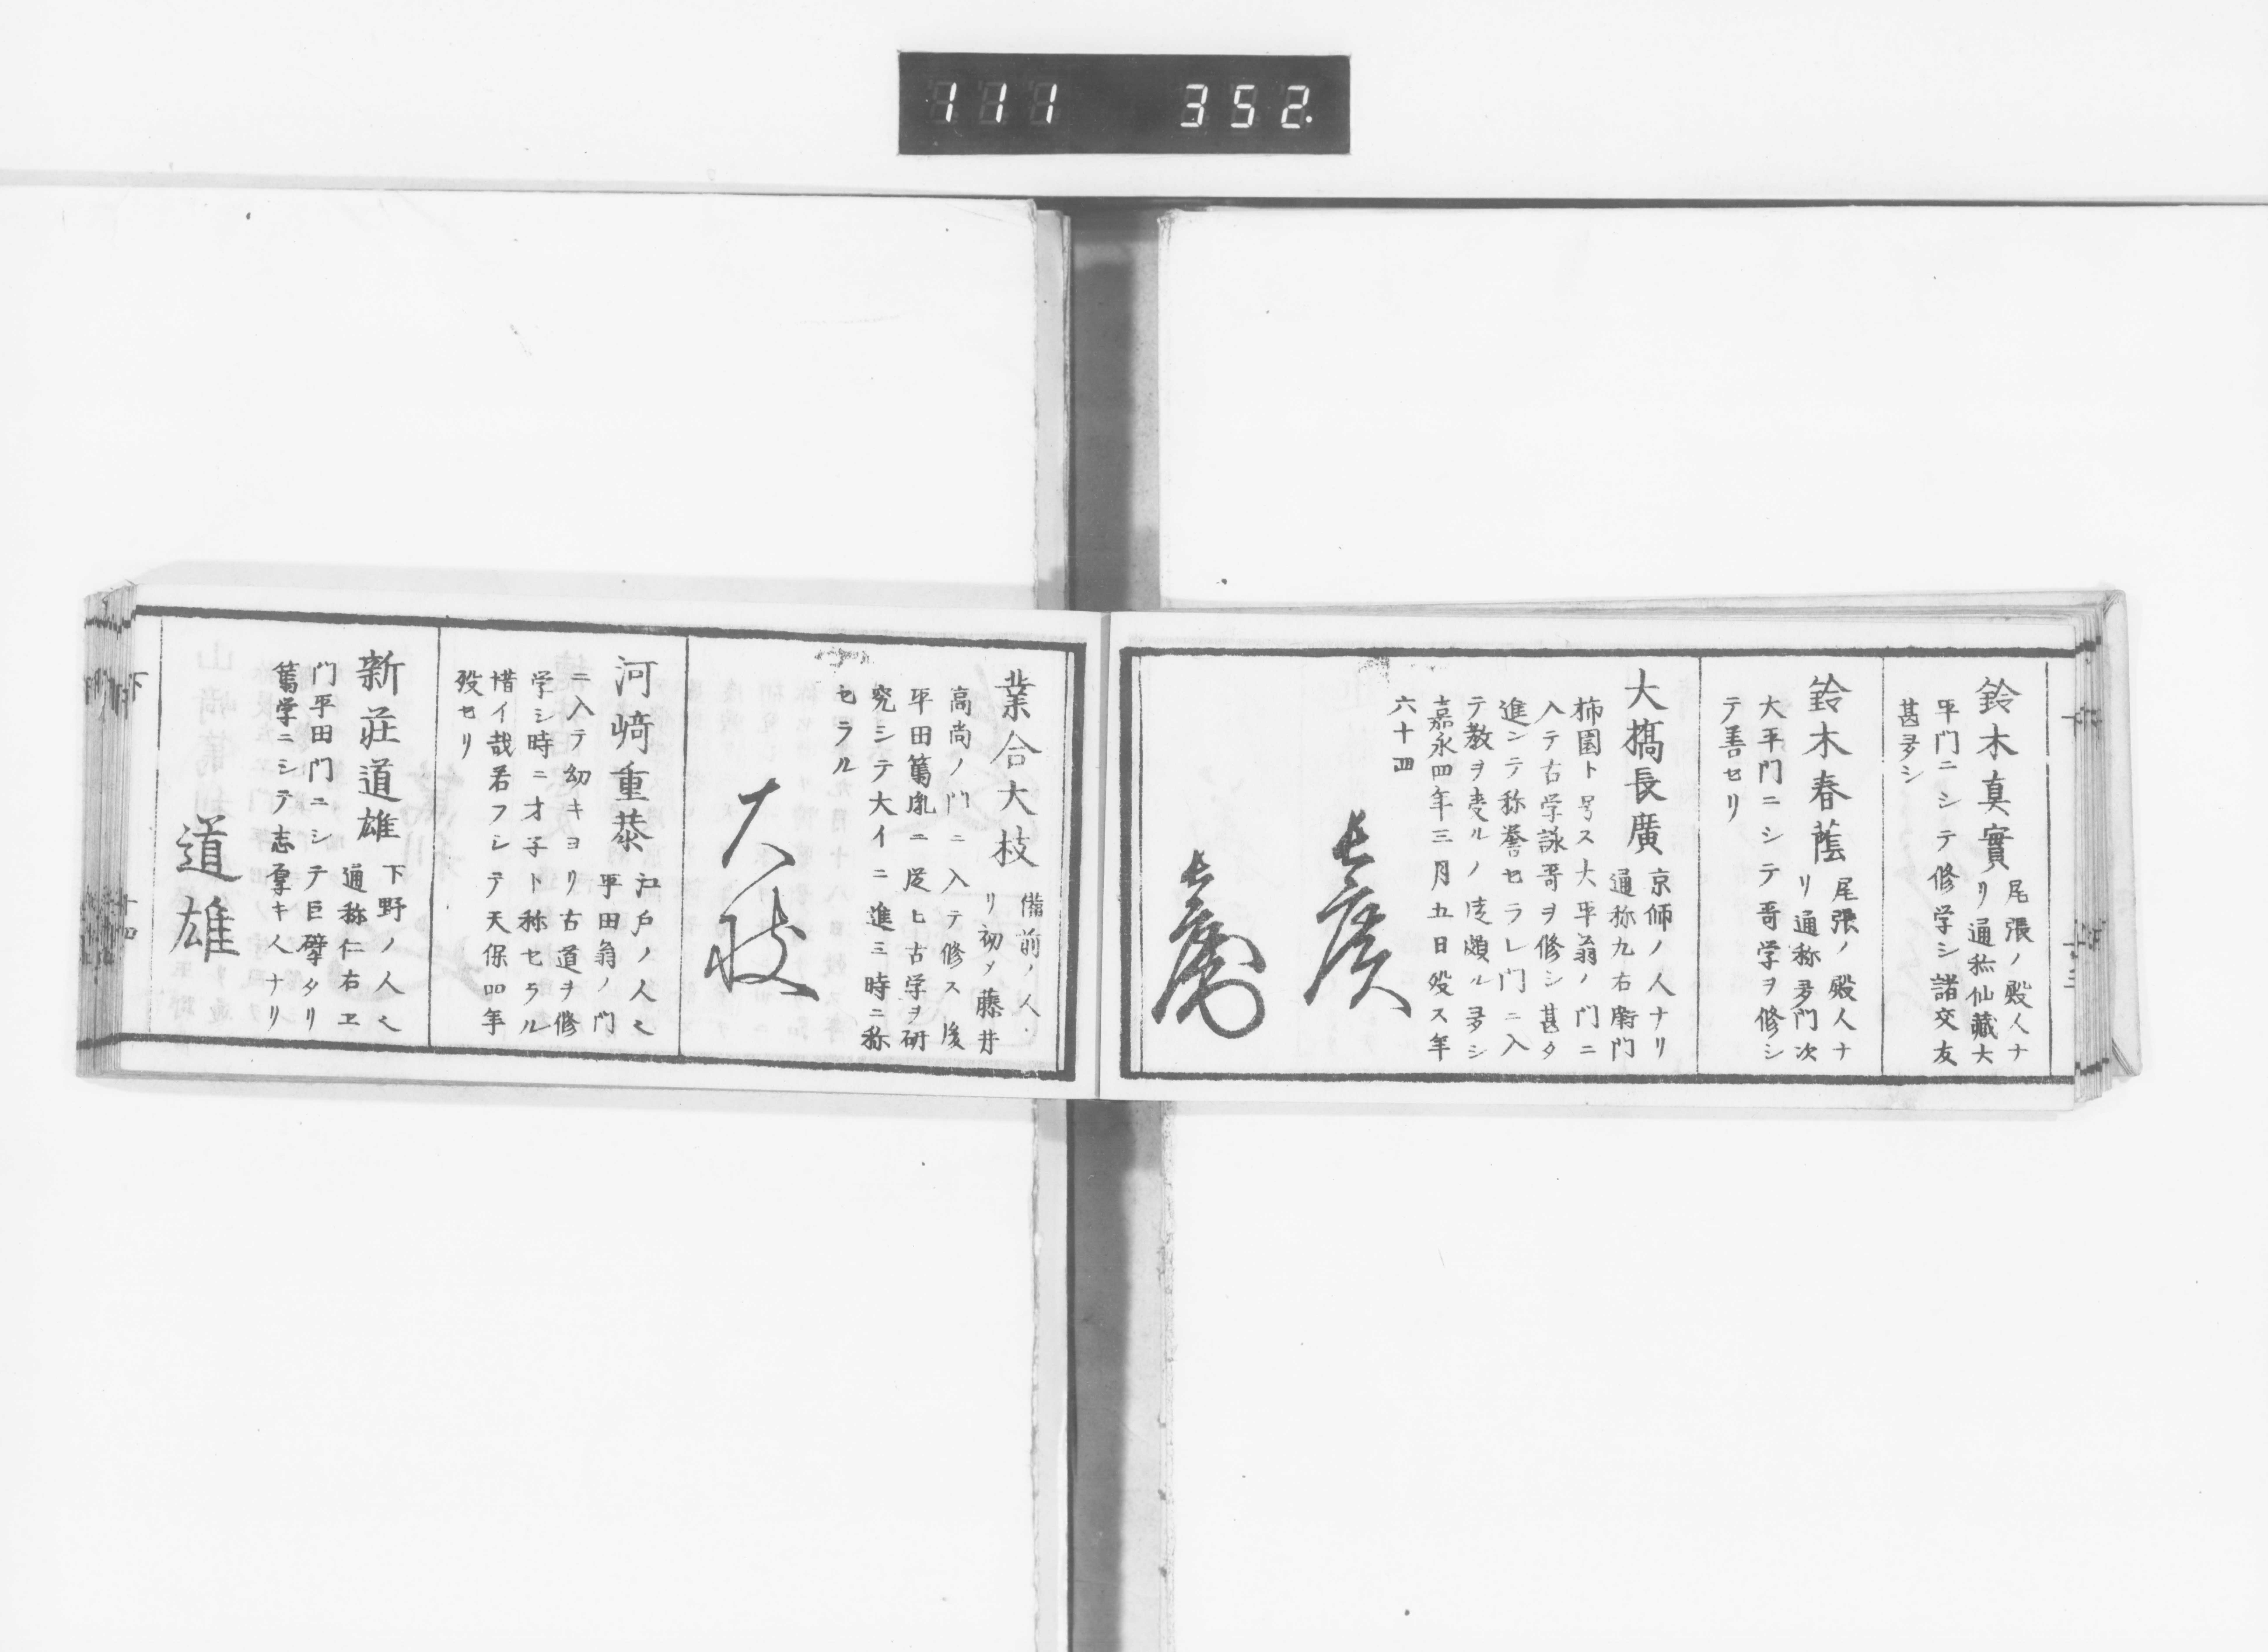 111 352.
鈴木真實
尾張ノ殿人ナ
リ通称仙藏大
平門ニシテ修学シ諸交友
甚多シ
鈴木春蔭
尾張ノ殿人ナ
リ通称多門次
大平門ニシテ哥学ヲ修シ
テ善セリ
大橋長廣
京師ノ人ナリ
通称九右衛門
柿園ト号ス大平翁ノ門ニ
入テ古学詠哥ヲ修シ甚タ
進ンテ称誉セラレ門ニ入
テ教ヲ受ルノ徒頗ル多シ
嘉永四年三月五日歿ス年
六十四
長廣
業合大枝
備前ノ人ナ
リ初メ藤井
高尚ノ門ニ入テ修ス後
平田篤胤ニ従ヒ古学ヲ研
究シテ大イニ進ミ時ニ称
セラル
大枝
河﨑重恭
江戸ノ人也
平田翁ノ門
ニ入テ幼キヨリ古道ヲ修
学シ時ニ才子ト称セラル
惜イ哉若フシテ天保四年
歿セリ
新莊道雄
下野ノ人也
通称仁右ヱ
門平田門ニシテ巨擘タリ
篤学ニシテ志厚キ人ナリ
道雄
下
十四